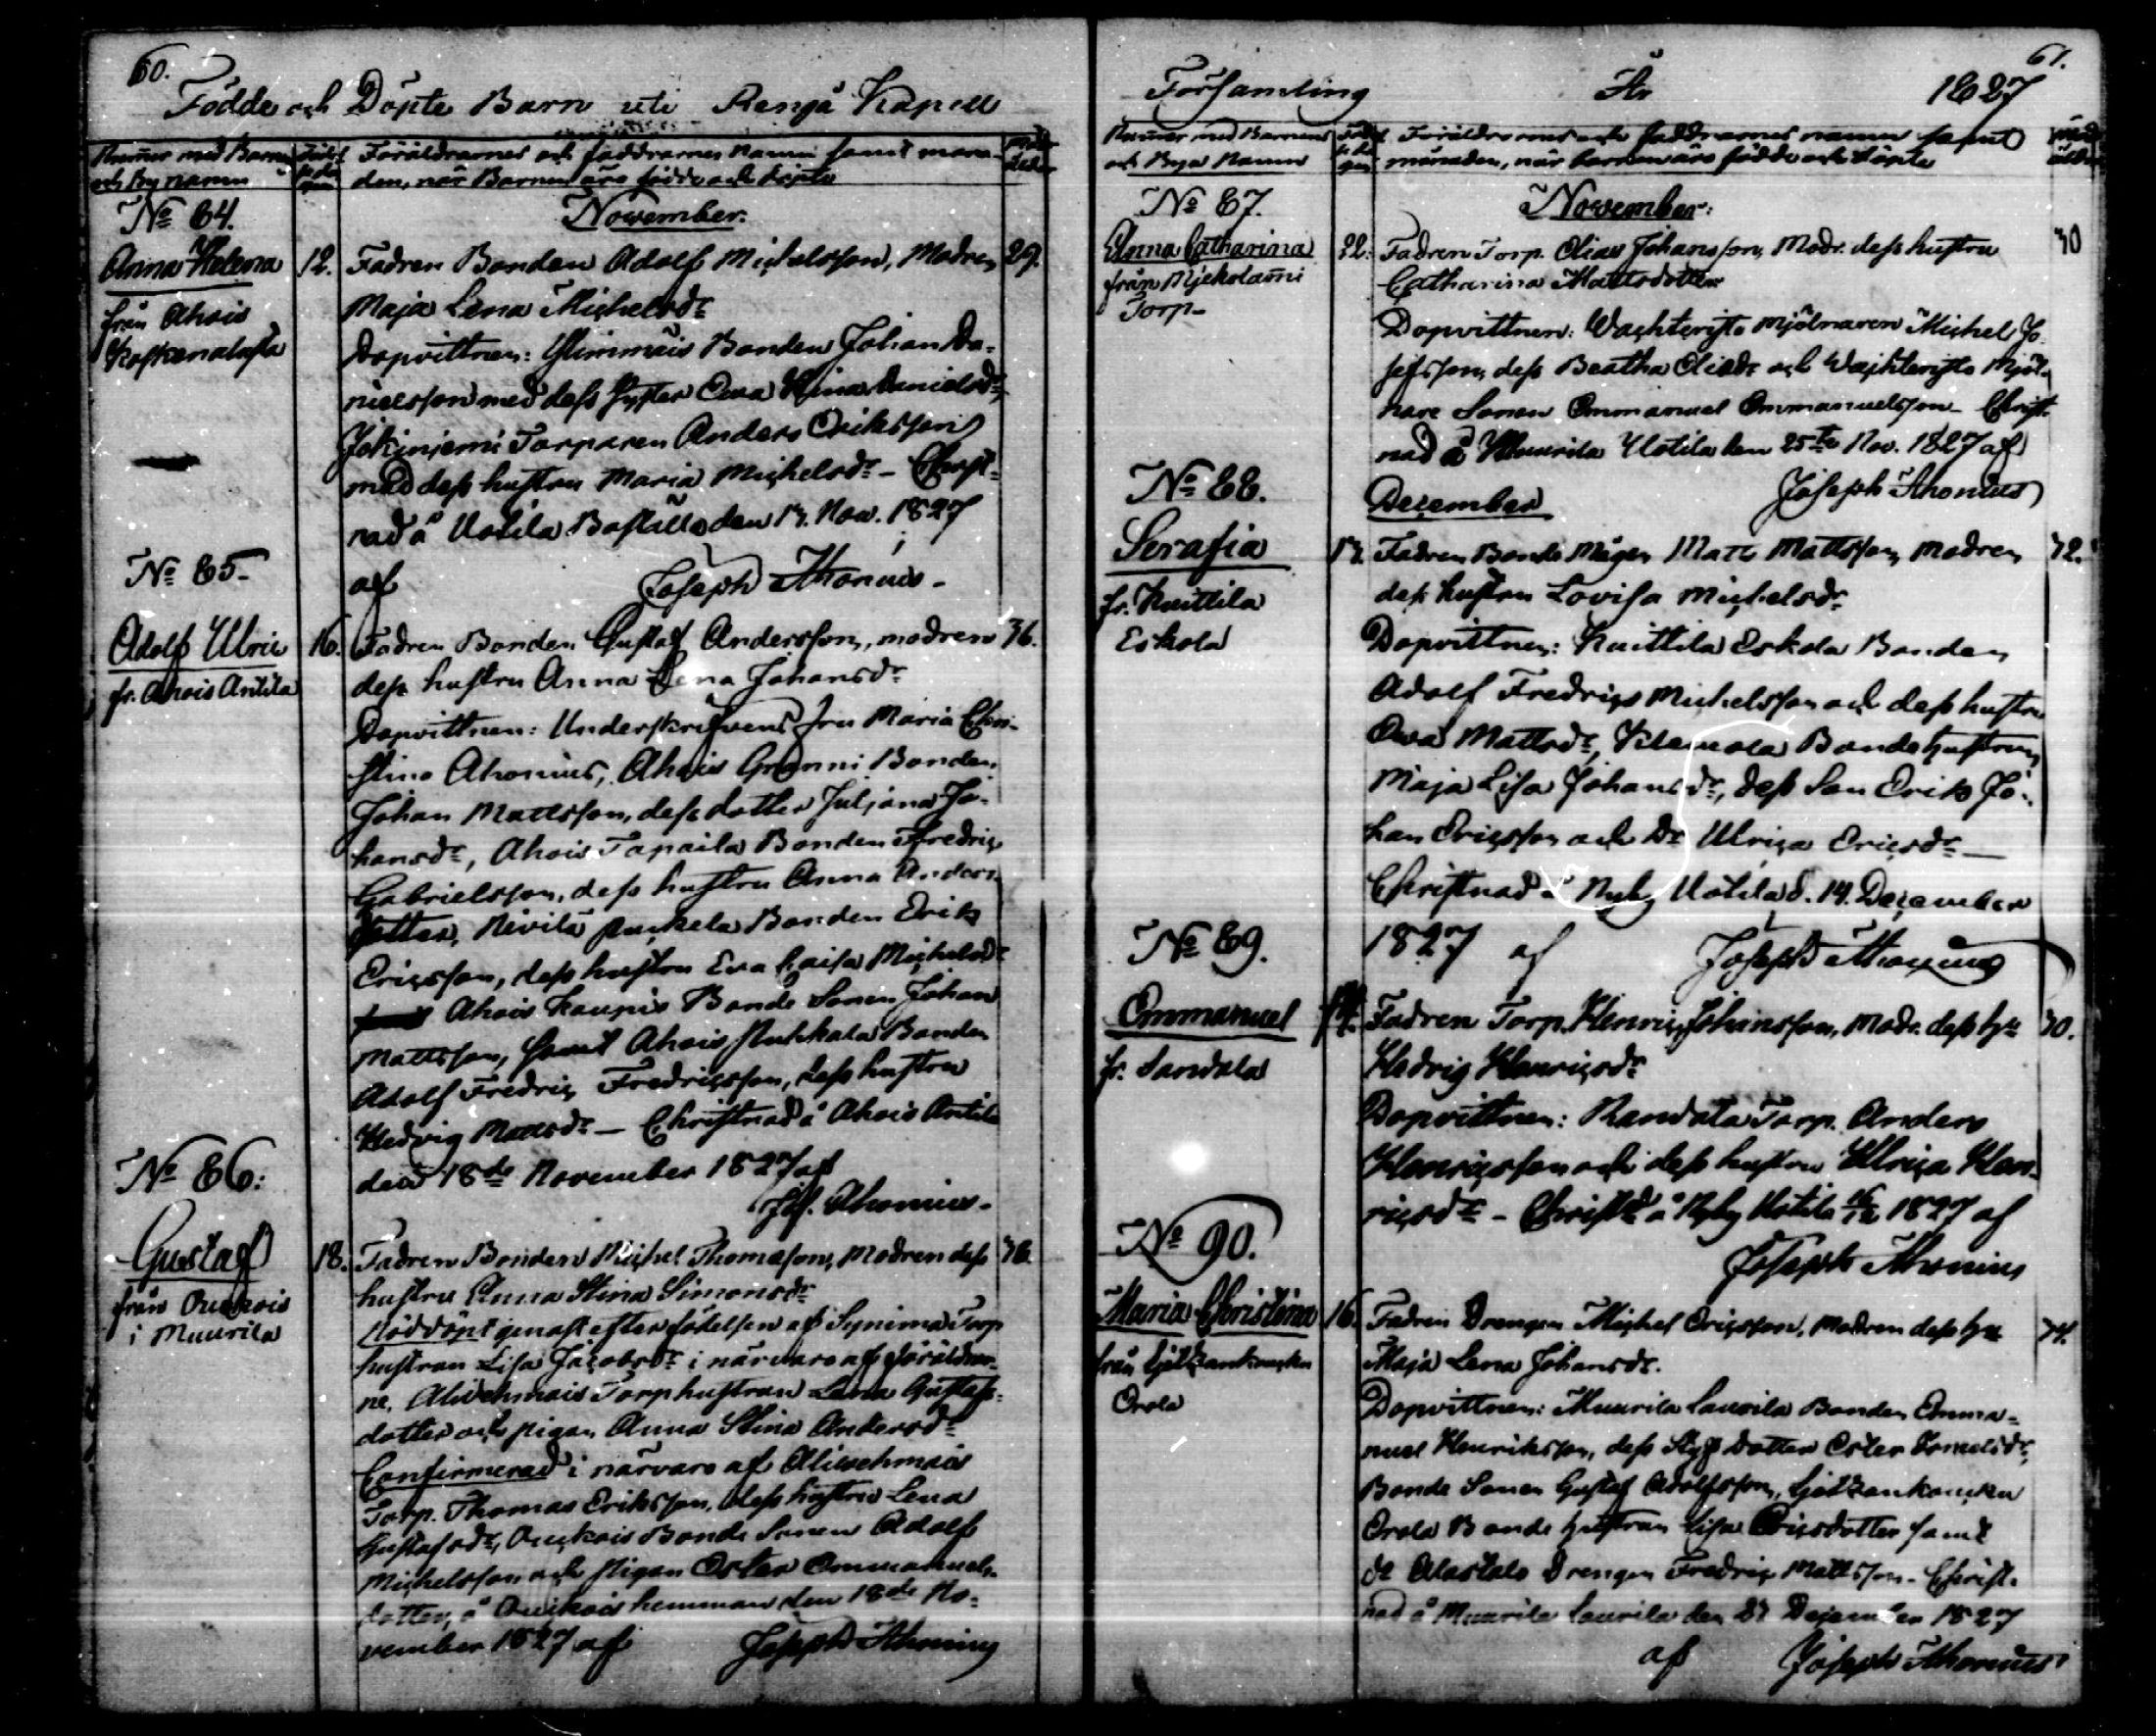 60.
Födde och Döpte Barn uti Rengå Kapell
Numer med Barnens och By namn
Föräldrarnes och faddrarnes Namn samt månaden, när Barnen äro födde och döpte
November.
No 84.
Anna Helena
från Ahois
12.
Fadren Bonden Adolf Michelsson, Modren
29.
Maja Lena Michelsdr
Dopvittnen: Bonden Johan Da-
nielsson med dess syster Ewa Stina Danielsdr,
Torparen Anders Eriksson
med dess hustru Maria Michelsdr - Christ-
nad å Uotila Boställe den Nov. 1827
af Joseph Ahonius.
No 85.
Adolf Ulric
fr. Ahois Antila
16.
Fadren Bonden Gustaf Andersson, modren
36.
dess hustru Anna Lena Johansdr
Dopvittnen: Underskrifwens fru Maria Chri-
stina Ahonius, Ahois Granni Bonden
Johan Mattsson, dess dotter Juljana Jo-
hansdr, Ahois Tapaila Bonden Fredric
Gabrielsson, dess hustru Anna Anders-
dotter, Bonden Erik
Ericsson, dess hustru Eva Caisa Michelsdr
Ahois Kaupis Bonde Sonen Johan
Mattsson, samt Ahois Bonden
Adolf Fredric Fredricsson, dess hustru
Hedvig Mattsdr - Christnad å Ahois Antila
den 18de November 1827 af
Jos. Ahonius.
No 86.
Gustaf
från
i Muurila
18.
Fadren Bonden Michel Thomasson, Modren dess
36.
hustru Anna Stina Simonsdr
Nöddöpt genast efter födelsen af Torp
hustrun Lisa Jacobsdr i närvaro af föräldrar-
ne, Torphustrun Lena Gustafs-
dotter och pigan Anna Stina Andersdr
Confirmerad i närvaro af
Torp. Thomas Eriksson, dess hustru Lena
Gustafsdr, Bonde Sonen Adolf
Michelsson och pigan Ester Emmanuels-
dotter, å hemman den 18de No-
vember 1827 af Joseph Ahonius
61.
Församling År 1827
Numer med Barnens och Byar Namn
Föräldrarnes och faddrarnes namn samt
månaden, när barnen äro födde och döpte
November.
No 87.
Anna Catharina
från
Torp-
22.
Fadren Torp. Elias Johansson, Modr. dess hustru
30
Catharina Mattsdotter
Dopvittnen: Mjölnaren Michel Jo-
sefsson, dess Beatha Eliedr och Mjöl-
nare Sonen Emmanuel Emmanuelsson - Christ-
nad å Muurila Uotila den 25te Nov. 1827 af
Joseph Ahonius
December
No 88.
Serafia
fr. Knittila
Eskola
Fadren Bonde Mågen Matts Mattsson, modren
32.
dess hustru Lovisa Michelsdr
Dopvittnen: Knittila Eskola Bonden
Adolf Fredric Michelsson och dess hustru
Ewa Mattsdr, Bonde hustrun
Maja Lisa Johansdr, dess Son Erik Jo-
han Ericsson och Dr Ulrica Ericsdr -
Christnad å Nyby Uotila d. 14 December
1827 af Joseph Ahonius
No 89.
Emmanuel
fr. Sandala
14.
Fadren Torp. Henric Johansson, Modr. dess hu
30.
Hedvig Henricsdr
Dopvittnen: Torp. Anders
Henricsson och dess hustru Ulrica Hen-
ricsdr - Christd å Nyby Uotila 16/12 1827 af
Joseph Ahonius
No 90.
Maria Christina
från
Orola
16.
Fadren Drengen Michel Ericsson, modren dess hu
Maja Lena Johansdr.
Dopvittnen: Muurila Laurila Bonden Emma-
nuel Henriksson, dess Styf dotter Ester
Bonde Sonen Gustaf Adolfsson,
Orola Bonde hustrun Lisa Ericsdotter samt
Alastalo Drengen Fredric Mattsson - Christ-
nad å Muurila Laurila den December 1827
af Joseph Ahonius